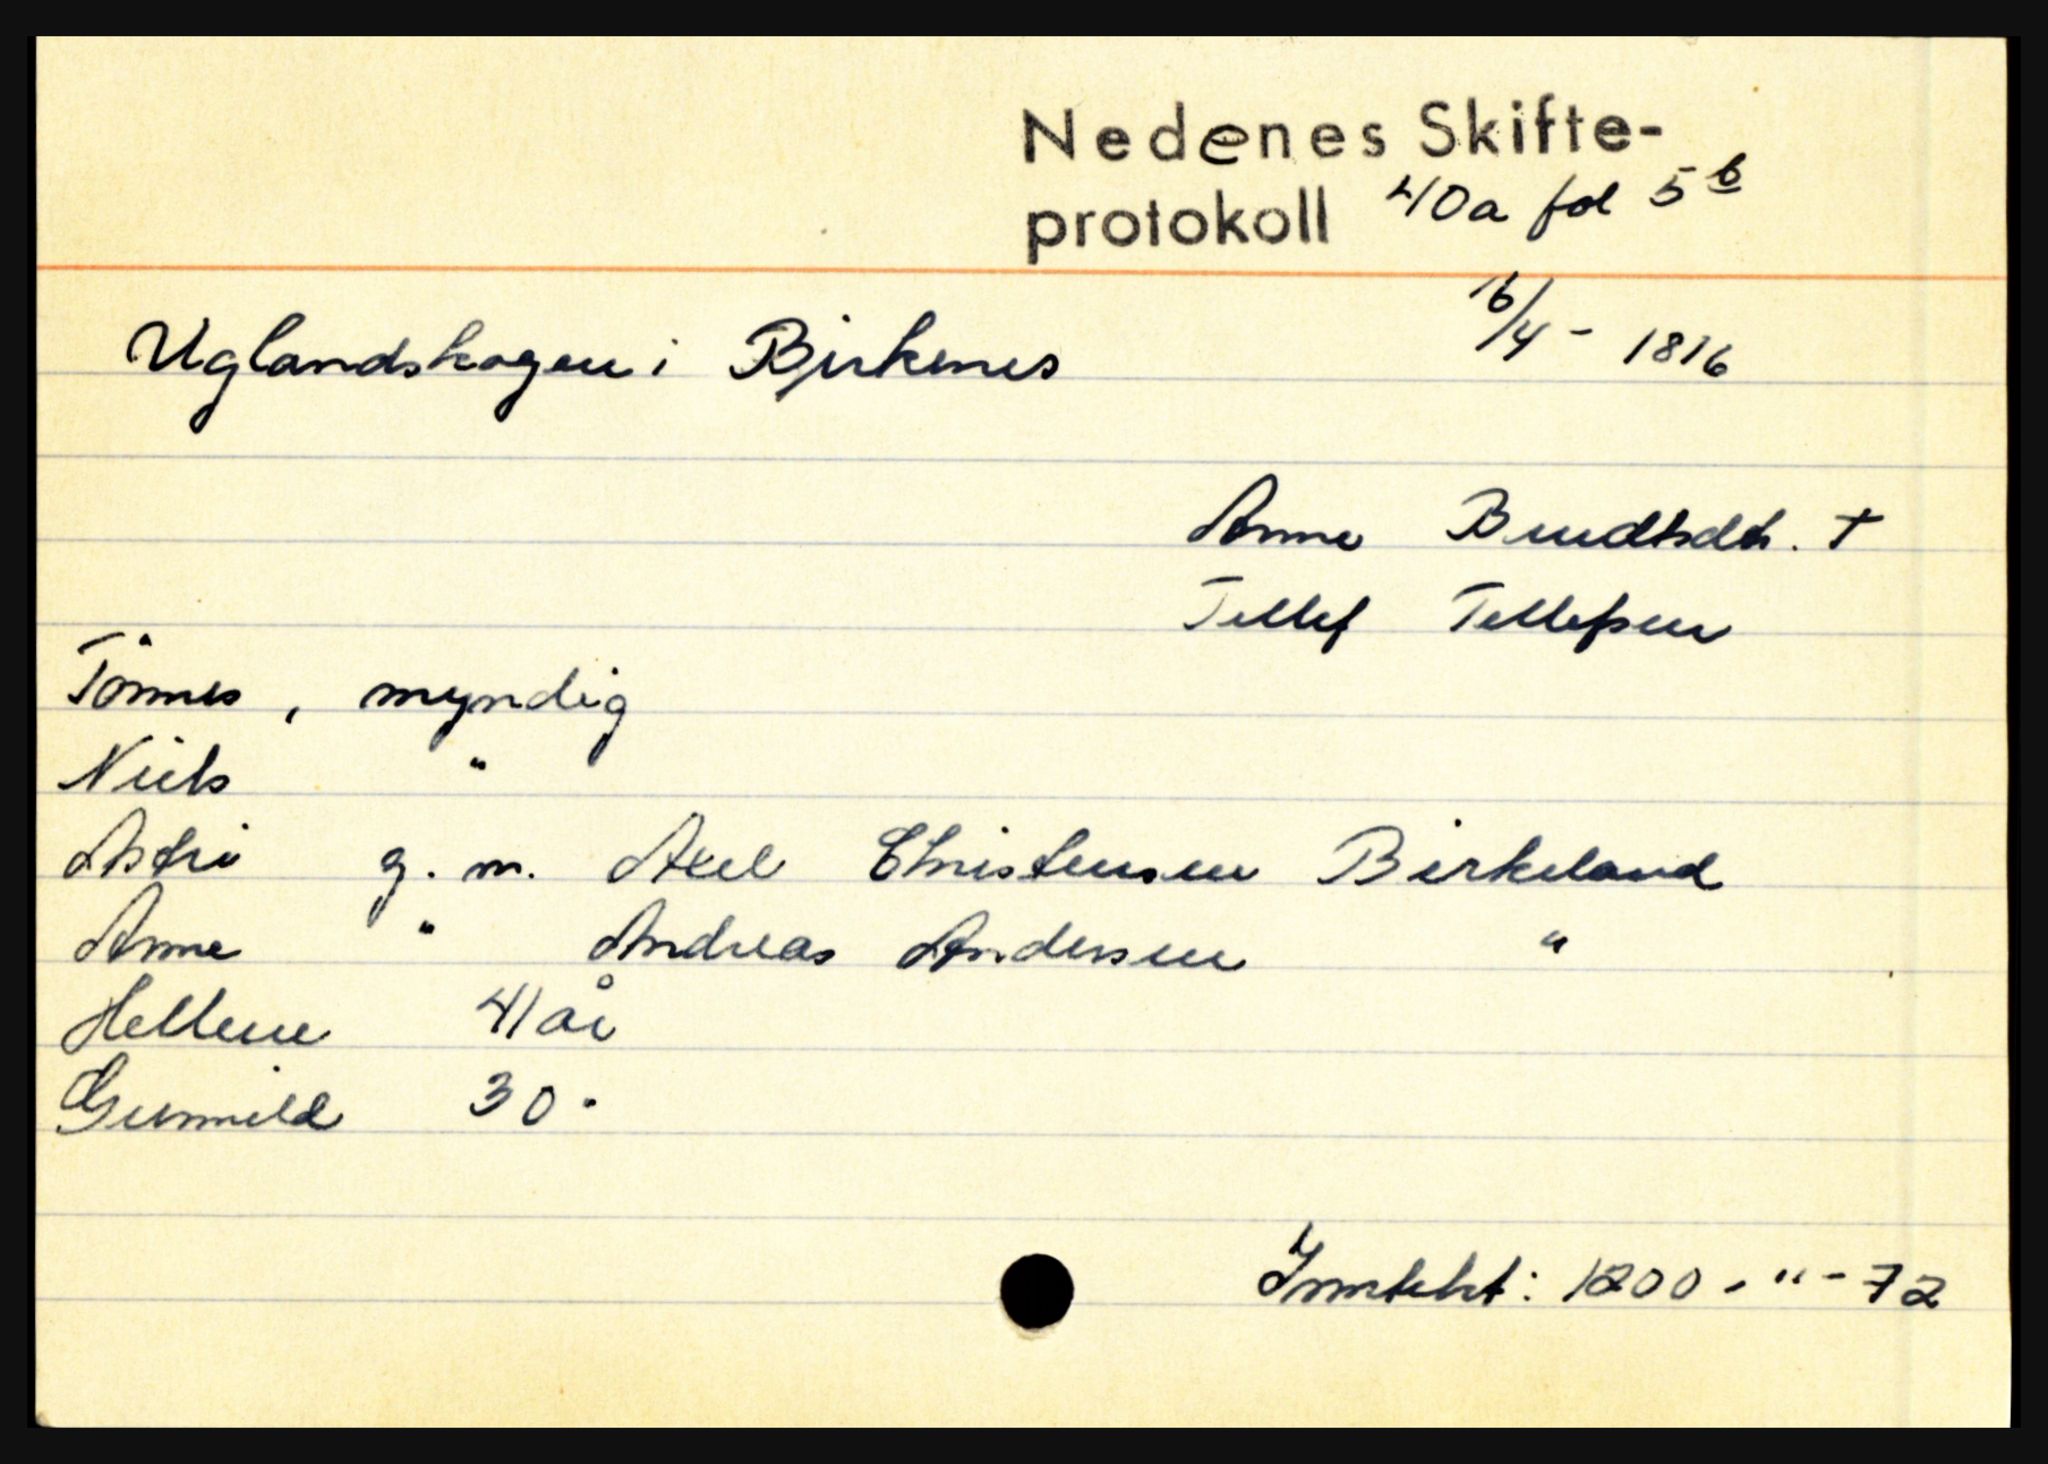 Nedenes Skifte-
protokoll 40a fol 5b
16/4 - 1816
Uglandskogen i Birkenes
Anne Bendtsdtr. †
Tellef Tellefsen
Tönnes, myndig
Niels "
Astri g. m. Axel Christensen Birkeland
Anne " Andreas Andersen "
Hellene 41 år
Gunnild 30 "
Inntekt: 1200 - " - 72